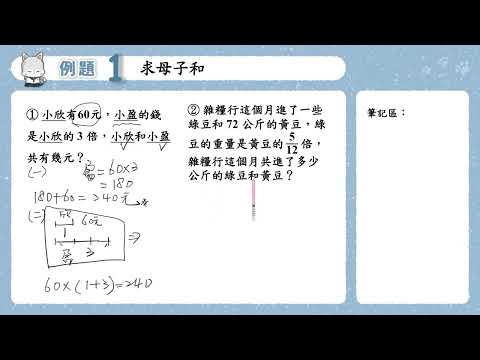 例題 1 求母子和
① 小欣有60元，小盈的錢
是小欣的 3 倍，小欣和小盈
共有幾元？
(一) 盈 = 60×3
= 180
180+60=240元
(二)
欣 60元
1
盈 3
60×(1+3)=240
② 雜糧行這個月進了一些
綠豆和 72 公斤的黃豆，綠
豆的重量是黃豆的 5/12 倍，
雜糧行這個月共進了多少
公斤的綠豆和黃豆？
筆記區：